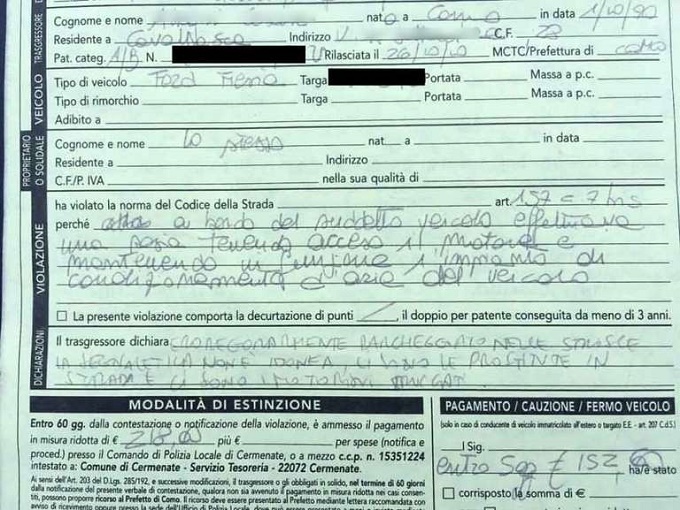 TRASGRESSORE
Cognome e nome nato a Como in data 1/10/90
Residente a Cavallasca Indirizzo V. C.F. 22
Pat. categ. A/B N. Rilasciata il 26/10/10 MCTC/Prefettura di Como
VEICOLO
Tipo di veicolo Ford Fiesta Targa Portata Massa a p.c.
Tipo di rimorchio Targa Portata Massa a p.c.
Adibito a
PROPRIETARIO O SOLIDALE
Cognome e nome lo stesso nat a in data
Residente a Indirizzo
C.F./P. IVA nella sua qualità di
VIOLAZIONE
ha violato la norma del Codice della Strada art. 157 c 7 bis
perché a bordo del suddetto veicolo effettuava
una sosta tenendo acceso il motore e
mantenendo in funzione l'impianto di
condizionamento d'aria del veicolo
La presente violazione comporta la decurtazione di punti , il doppio per patente conseguita da meno di 3 anni.
DICHIARAZIONI
Il trasgressore dichiara PARCHEGGIO NELLE STRISCE
LA SEGNALETICA NON È IDONEA CI SONO LE PROSTITUTE IN
STRADA E CI SONO I MOTORINI TRUCCATI
MODALITÀ DI ESTINZIONE
Entro 60 gg. dalla contestazione o notificazione della violazione, è ammesso il pagamento
in misura ridotta di € 218,00 più € per spese (notifica e
proced.) presso il Comando di Polizia Locale di Cermenate, o a mezzo c.c.p. n. 15351224
intestato a: Comune di Cermenate - Servizio Tesoreria - 22072 Cermenate.
Ai sensi dell'Art. 203 del D.Lgs. 285/192, e successive modificazioni, il trasgressore o gli obbligati in solido, nel termine di 60 giorni
dalla notificazione del presente verbale di contestazione, qualora non sia avvenuto il pagamento in misura ridotta nei casi consen-
titi, possono proporre ricorso al Prefetto di Como. Il ricorso deve essere presentato al Prefetto mediante lettera raccomandata con
avviso di ricevimento oppure presso la sede dell'Ufficio di Polizia Locale
PAGAMENTO / CAUZIONE / FERMO VEICOLO
(solo in caso di conducente di veicolo immatricolato all'estero o targato E.E. - art. 207 C.d.S.)
I Sig.
entro 5gg € 152,60 ha/è stato
corrisposto la somma di €